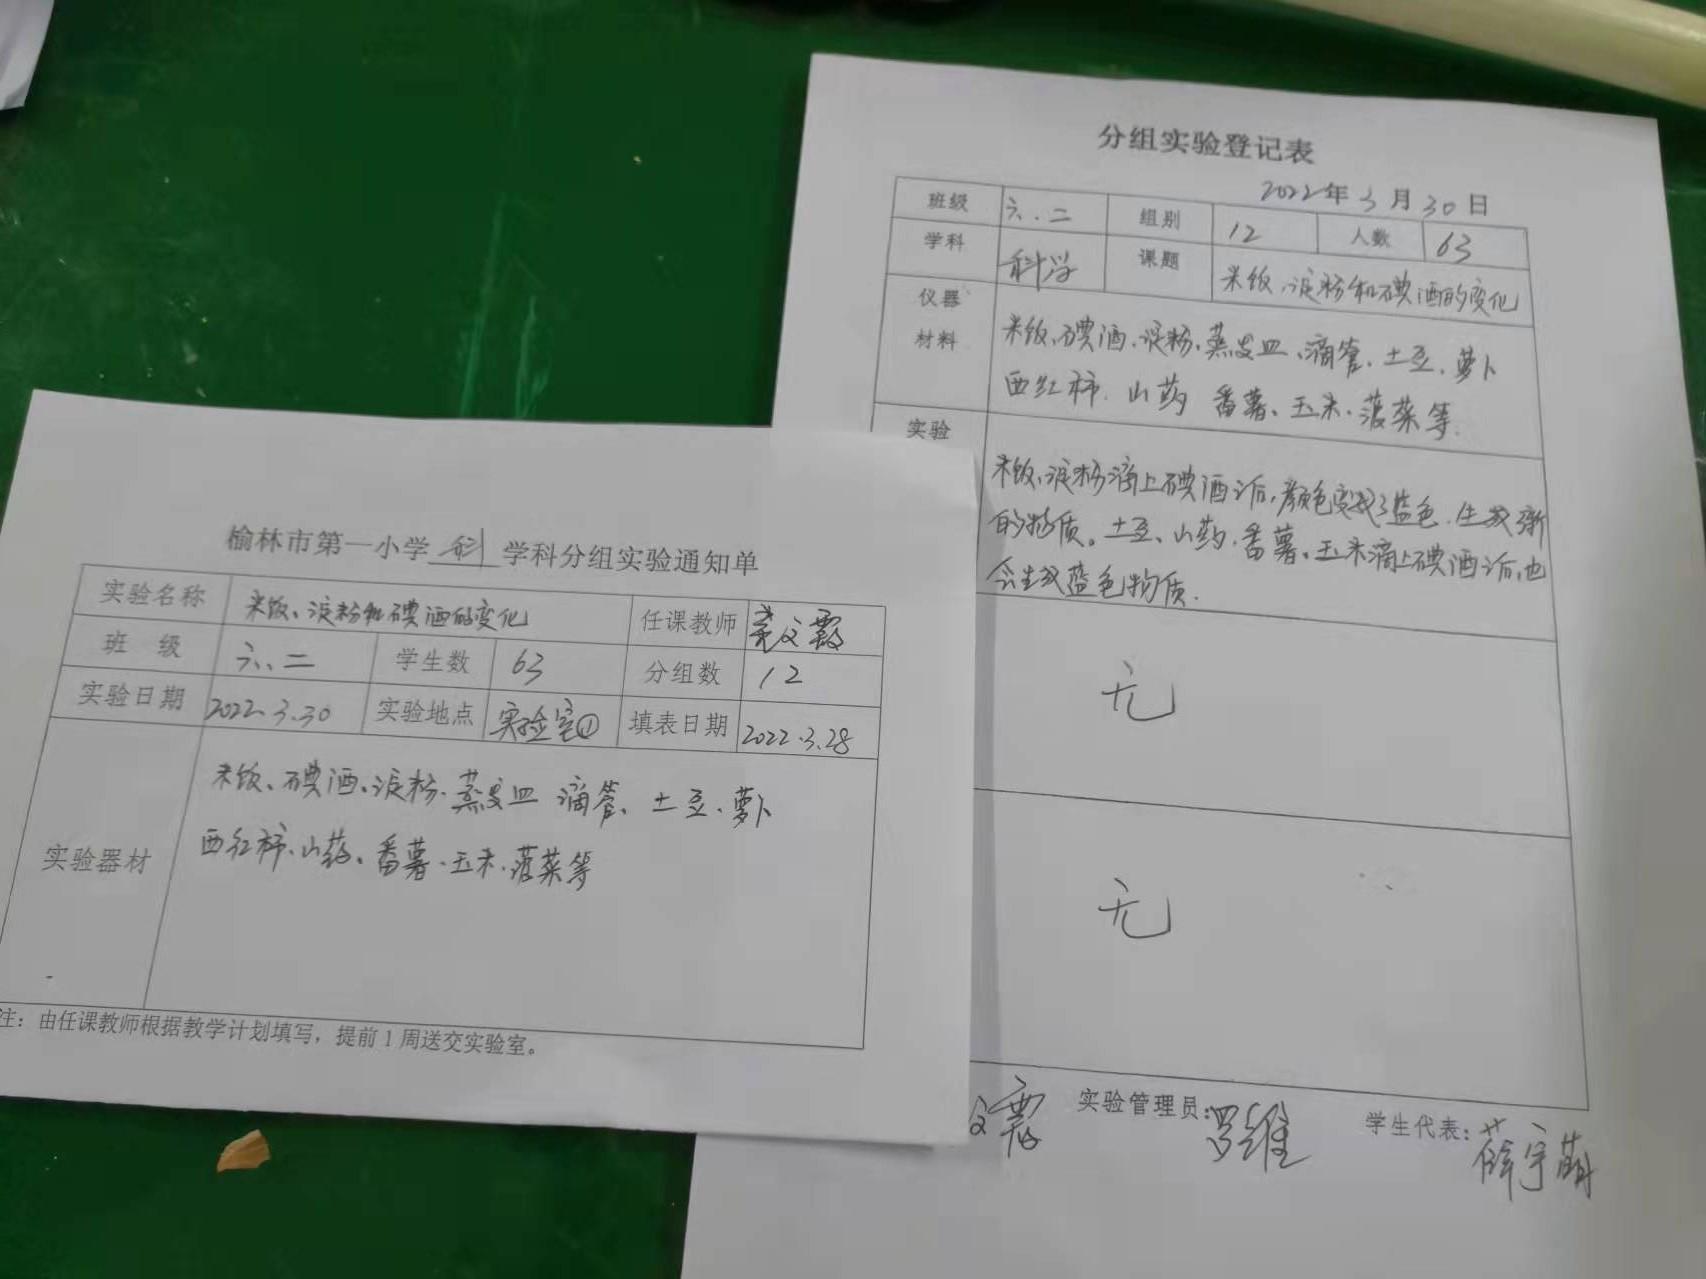 榆林市第一小学 科 学科分组实验通知单
实验名称 米饭、淀粉和碘酒的变化 任课教师
班 级 六、二 学生数 63 分组数 12
实验日期 2022.3.30 实验地点 实验室① 填表日期 2022.3.28
实验器材
米饭、碘酒、淀粉、蒸发皿 滴管、土豆、萝卜
西红柿、山药、番薯、玉米、菠菜等
注：由任课教师根据教学计划填写，提前1周送交实验室。
分组实验登记表
2022年3月30日
班级 六、二 组别 12 人数 63
学科 科学 课题 米饭、淀粉和碘酒的变化
仪器
材料
米饭、碘酒、淀粉、蒸发皿、滴管、土豆、萝卜
西红柿、山药 番薯、玉米、菠菜等.
实验
米饭、淀粉滴上碘酒后，颜色变成了蓝色.生成新
的物质。土豆、山药、番薯、玉米滴上碘酒后，也
会生成蓝色物质.
无
无
实验管理员：罗维 学生代表：薛宇萌